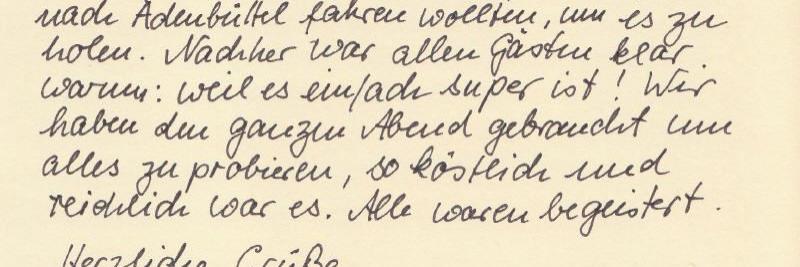 nach Adenbüttel fahren wollten, um es zu
holen. Nachher war allen Gästen klar
warum: weil es einfach super ist! Wir
haben den ganzen Abend gebraucht um
alles zu probieren, so köstlich und
reichlich war es. Alle waren begeistert.
Herzliche Grüße